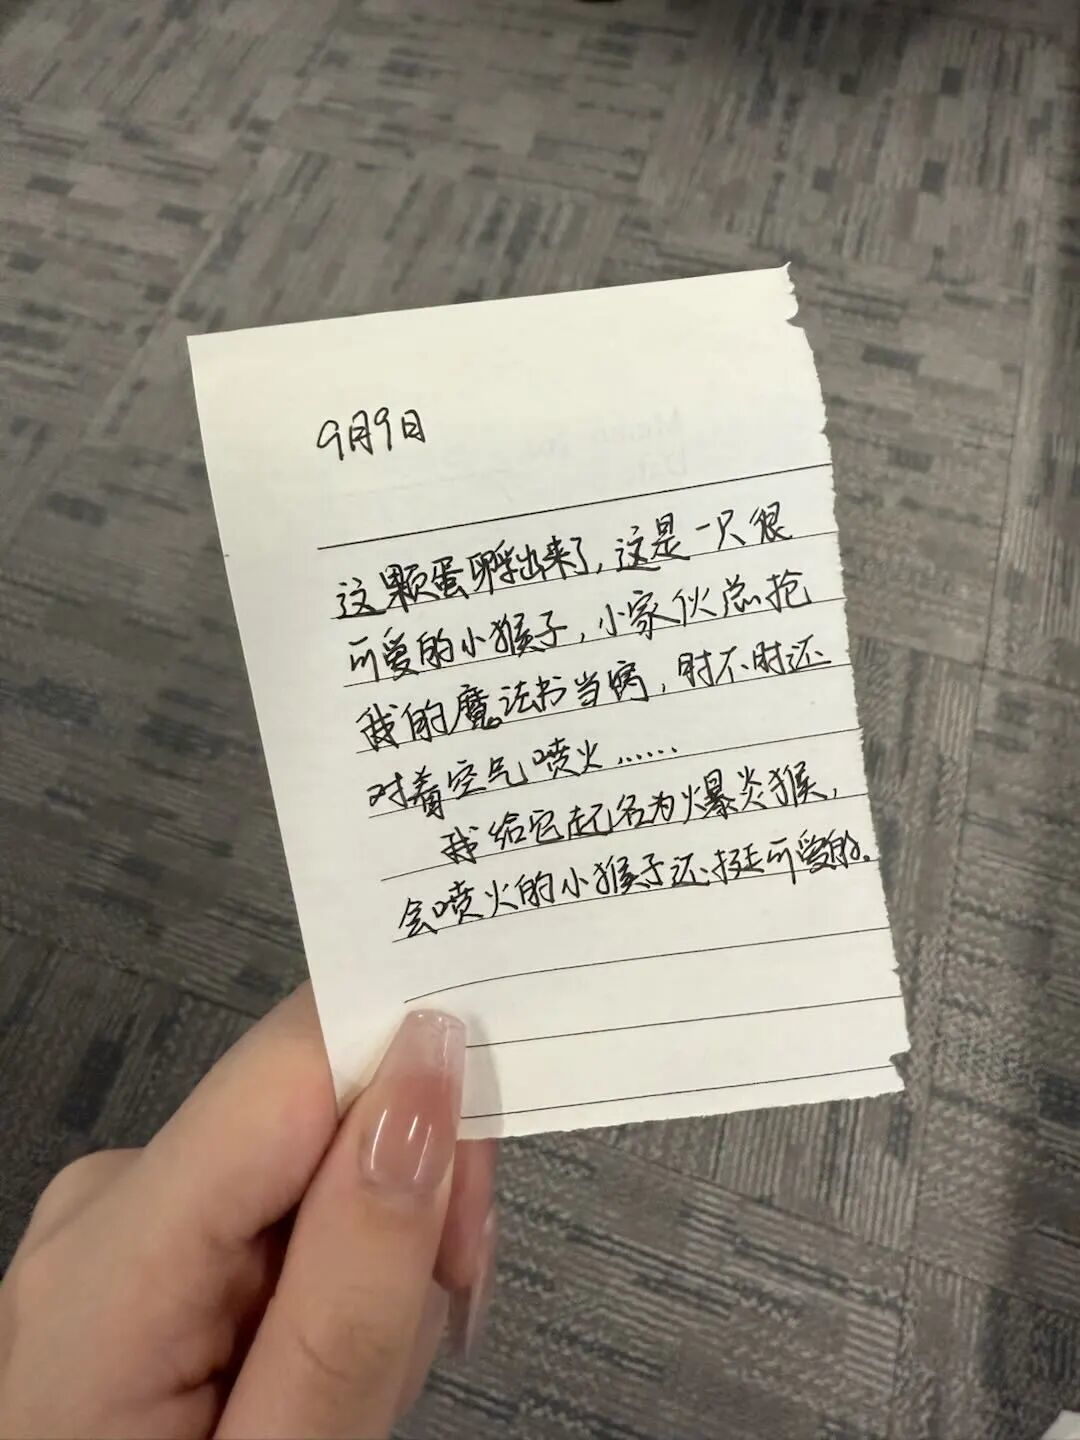 9月9日
这颗蛋孵出来了，这是一只很
可爱的小猴子，小家伙总抢
我的魔法书当窝，时不时还
对着空气喷火……
我给它起名为爆炎猴，
会喷火的小猴子还挺可爱的。